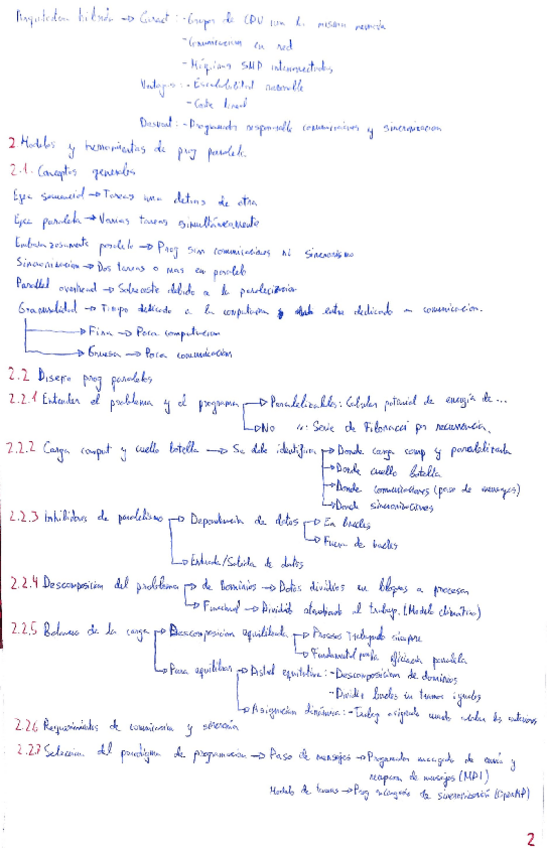 Arquitectura híbrida → Caract: - Grupos de CPU con la misma memoria
- Comunicacion en red
- Máquinas SMP interconectadas
Ventajas: - Escalabilidad razonable
- Coste lineal
Desvent: - Programador responsable comunicaciones y sincronizacion
2 Modelos y herramientas de prog paralela
2.1. Conceptos generales
Ejec secuencial → Tareas una detras de otra
Ejec paralela → Varias tareas simultáneamente
Embarazosamente paralelo → Prog sin comunicaciones ni sincronismo
Sincronizacion → Dos tareas o mas en paralelo
Parallel overhead → Sobrecoste debido a la paralelizacion
Granularidad → Tiempo dedicado a la computacion entre dedicado a comunicacion.
→ Fina → Poca computacion
→ Gruesa → Poca comunicacion
2.2 Diseño prog paralelos
2.2.1 Entender el problema y el programa → Paralelizables: Calcular potencial de energía de ...
→ No ": Serie de Fibonacci por recurrencia.
2.2.2 Carga comput y cuello botella → Se debe identificar → Donde carga comp y paralelizarla
→ Donde cuello botella
→ Donde comunicaciones (paso de mensajes)
→ Donde sincronizaciones
2.2.3 Inhibidores de paralelismo → Dependencia de datos → En bucles
→ Fuera de bucles
→ Entrada/Salida de datos
2.2.4 Descomposicion del problema → de Dominios → Datos divididos en bloques a procesar
→ Funcional → Dividido atendiendo al trabajo. (Modelo climatico)
2.2.5 Balanceo de la carga → Descomposicion equilibrada → Procesos trabajando siempre
→ Fundamental para la eficiencia paralela
→ Para equilibrar → Distrib equitativa: - Descomposicion de dominios
- Dividir bucles en tramos iguales
→ Asignacion dinámica: - Trabajo asignado cuando acaban los anteriores
2.2.6 Requerimientos de comunicacion y
2.2.7 Seleccion del paradigma de programacion → Paso de mensajes → Programador encargado de envío y
recepcion de mensajes (MPI)
Modelo de tareas → Prog encargado de sincronización (OpenMP)
2